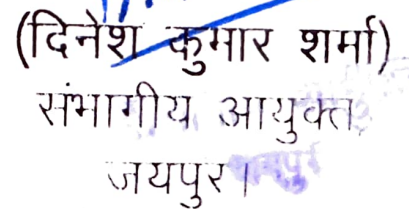 (दिनेश कुमार शर्मा)
संभागीय आयुक्त,
जयपुर।